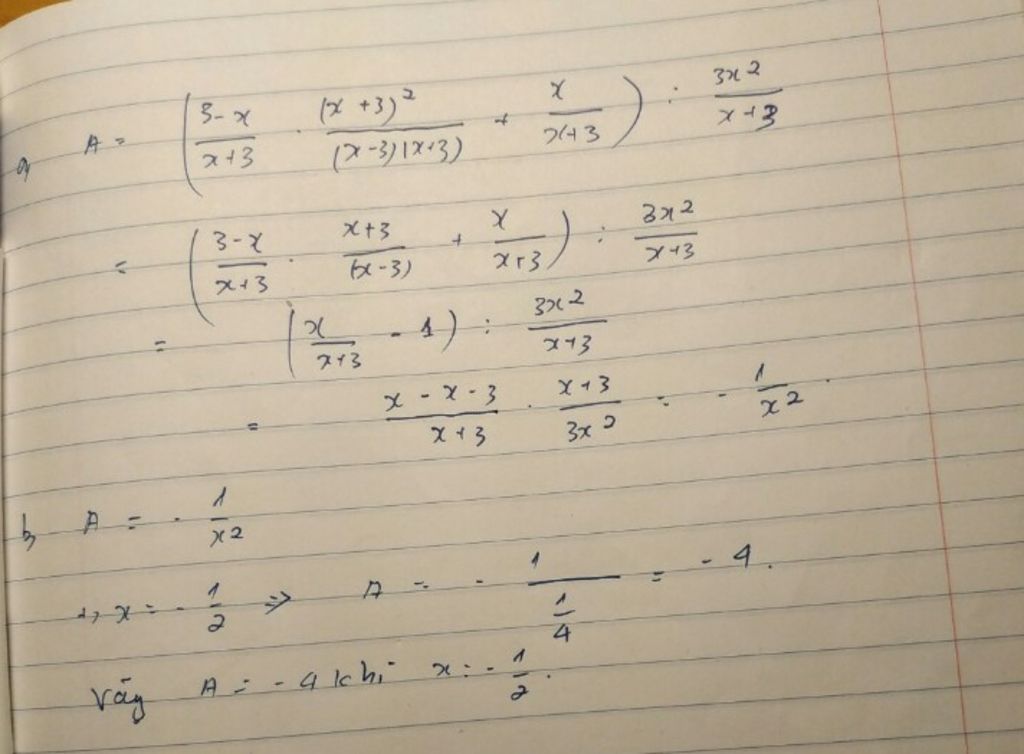 a, A = ( (3-x)/(x+3) . (x+3)²/((x-3)(x+3)) + x/(x+3) ) : 3x²/(x+3)
= ( (3-x)/(x+3) . (x+3)/(x-3) + x/(x+3) ) : 3x²/(x+3)
= ( x/(x+3) - 1 ) : 3x²/(x+3)
= (x-x-3)/(x+3) . (x+3)/3x² = - 1/x².
b, A = - 1/x²
x = - 1/2 => A = - 1/(1/4) = - 4.
Vậy A = - 4 khi x = - 1/2.